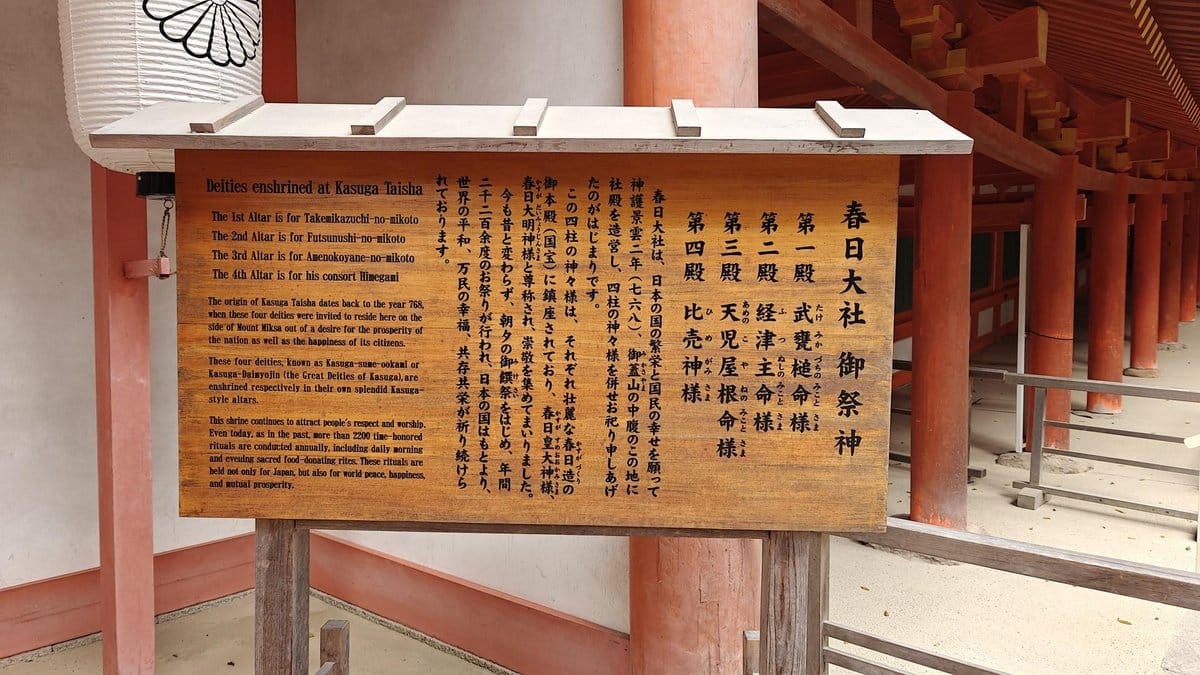 春日大社御祭神
第一殿 武甕槌命様
たけみかづちのみことさま
第二殿 経津主命様
ふつぬしのみことさま
第三殿 天児屋根命様
あめのこやねのみことさま
第四殿 比売神様
ひめがみさま
春日大社は、日本の国の繁栄と国民の幸せを願って
神護景雲二年(七六八)、御蓋山の中腹のこの地に
社殿を造営し、四柱の神々様を併せお祀り申しあげ
たのがはじまりです。
この四柱の神々様は、それぞれ壮麗な春日造の
かすがづくり
御本殿(国宝)に鎮座されており、春日皇大神様、
かすがすめおおかみさま
春日大明神様と尊称され、崇敬を集めてまいりました。
かすがだいみょうじんさま
今も昔と変わらず、朝夕の御饌祭をはじめ、年間
二千二百余度のお祭りが行われ、日本の国はもとより、
世界の平和、万民の幸福、共存共栄が祈り続けら
れております。
Deities enshrined at Kasuga Taisha
The 1st Altar is for Takemikazuchi-no-mikoto
The 2nd Altar is for Futsunushi-no-mikoto
The 3rd Altar is for Amenokoyane-no-mikoto
The 4th Altar is for his consort Himegami
The origin of Kasuga Taisha dates back to the year 768,
when these four deities were invited to reside here on the
side of Mount Miksa out of a desire for the prosperity of
the nation as well as the happiness of its citizens.
These four deities, known as Kasuga-sume-ookami or
Kasuga-Daimyojin (the Great Deities of Kasuga), are
enshrined respectively in their own splendid Kasuga-
style altars.
This shrine continues to attract people's respect and worship.
Even today, as in the past, more than 2200 time-honored
rituals are conducted annually, including daily morning
and evening sacred food-donating rites. These rituals are
held not only for Japan, but also for world peace, happiness,
and mutual prosperity.